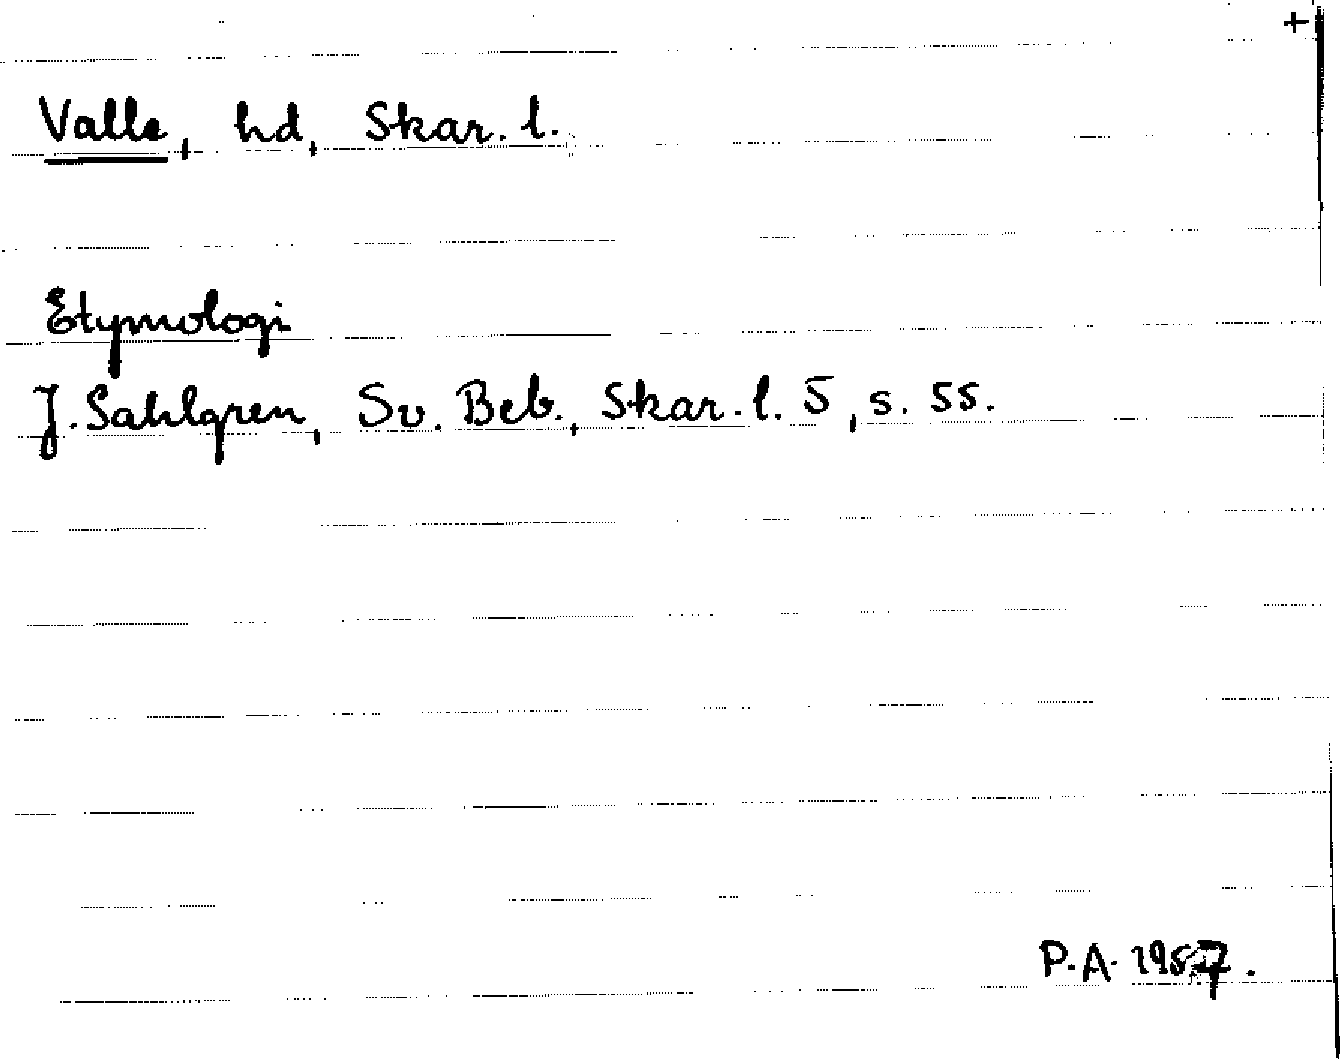 +
Valle, hd, Skar. l.
Etymologi
J. Sahlgren, Sv. Beb., Skar. l. 5, s. 55.
P.A. 1957.